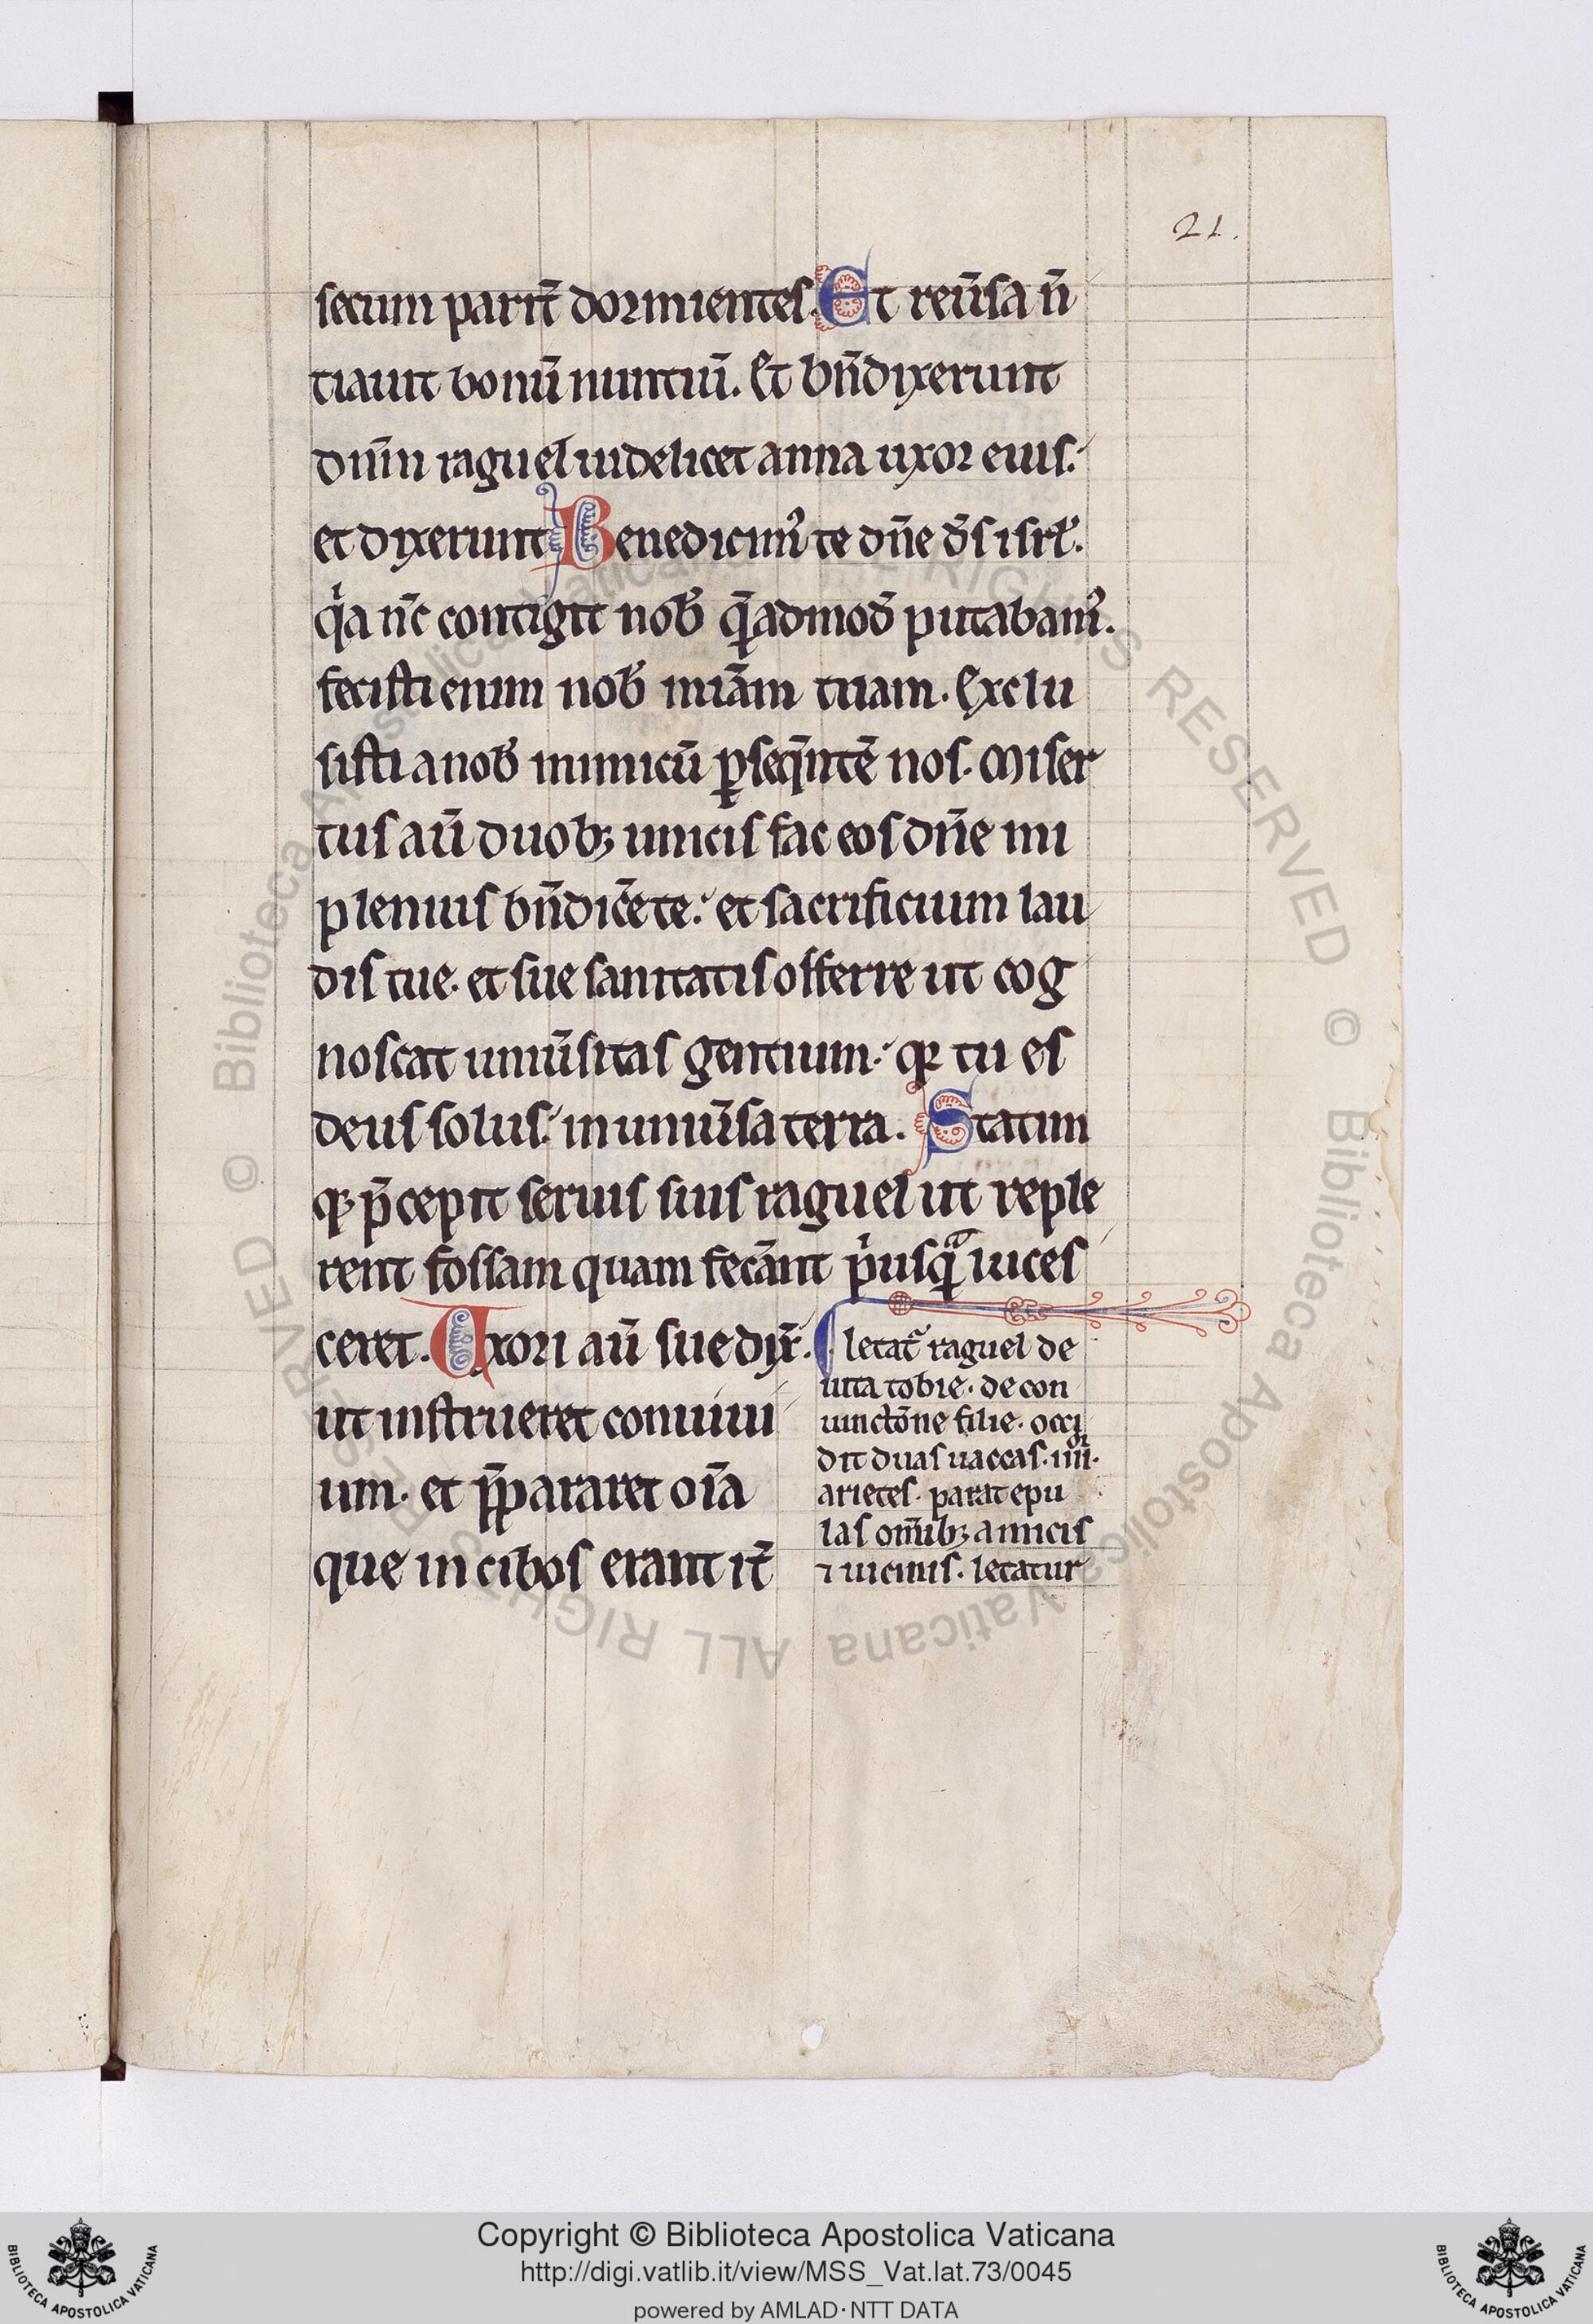 21.
secum parit̄ dormientes. Et reuᷤsa n̄
tiauit bonū nuntiū. Et bn̄dixerunt
dn̄m raguel uidelicet anna uxor eius.
et dixerunt Benedicimꝰ te dn̄e ds̄ isrl̄.
qͥa n̄c contigit nob̄ qm̄admod̄ putabamꝰ.
fecisti enim nob̄ miām tuam. Exclu
sisti a nob̄ inimicū ꝑseqn̄tē nos. Miser
tus aū duobꝫ unicis fac eos dn̄e mi
plenius bn̄dic̄e te. et sacrificium lau
dis tue. et sue sanitatis offerre ut cog
noscat uniū̄sitas gentium. qꝛ tu es
deus solus. in uniuū̄sa terra. Statim
qꝫ p̄cepit seruis suis raguel ut reple
rent fossam quam fec̄ant pͥusqͣ̄ luces
ceret. Uxori aū sue dix̄.
ut instrueret conuiui
um. et p̄pararet oīa
que in cibos erant it̄
letatᷣ raguel de
uita tobie. de con
iunctōne filie. occi
dit duas uaccas. iiiiᵒʳ.
arietes. parat epu
las om̄ibꝫ amicis
⁊ uicinis. letatur
Copyright © Biblioteca Apostolica Vaticana
http://digi.vatlib.it/view/MSS_Vat.lat.73/0045
powered by AMLAD·NTT DATA
BIBLIOTECA APOSTOLICA VATICANA
BIBLIOTECA APOSTOLICA VATICANA
© Biblioteca Apostolica Vaticana ALL RIGHTS RESERVED © Biblioteca Apostolica Vaticana ALL RIGHTS RESERVED